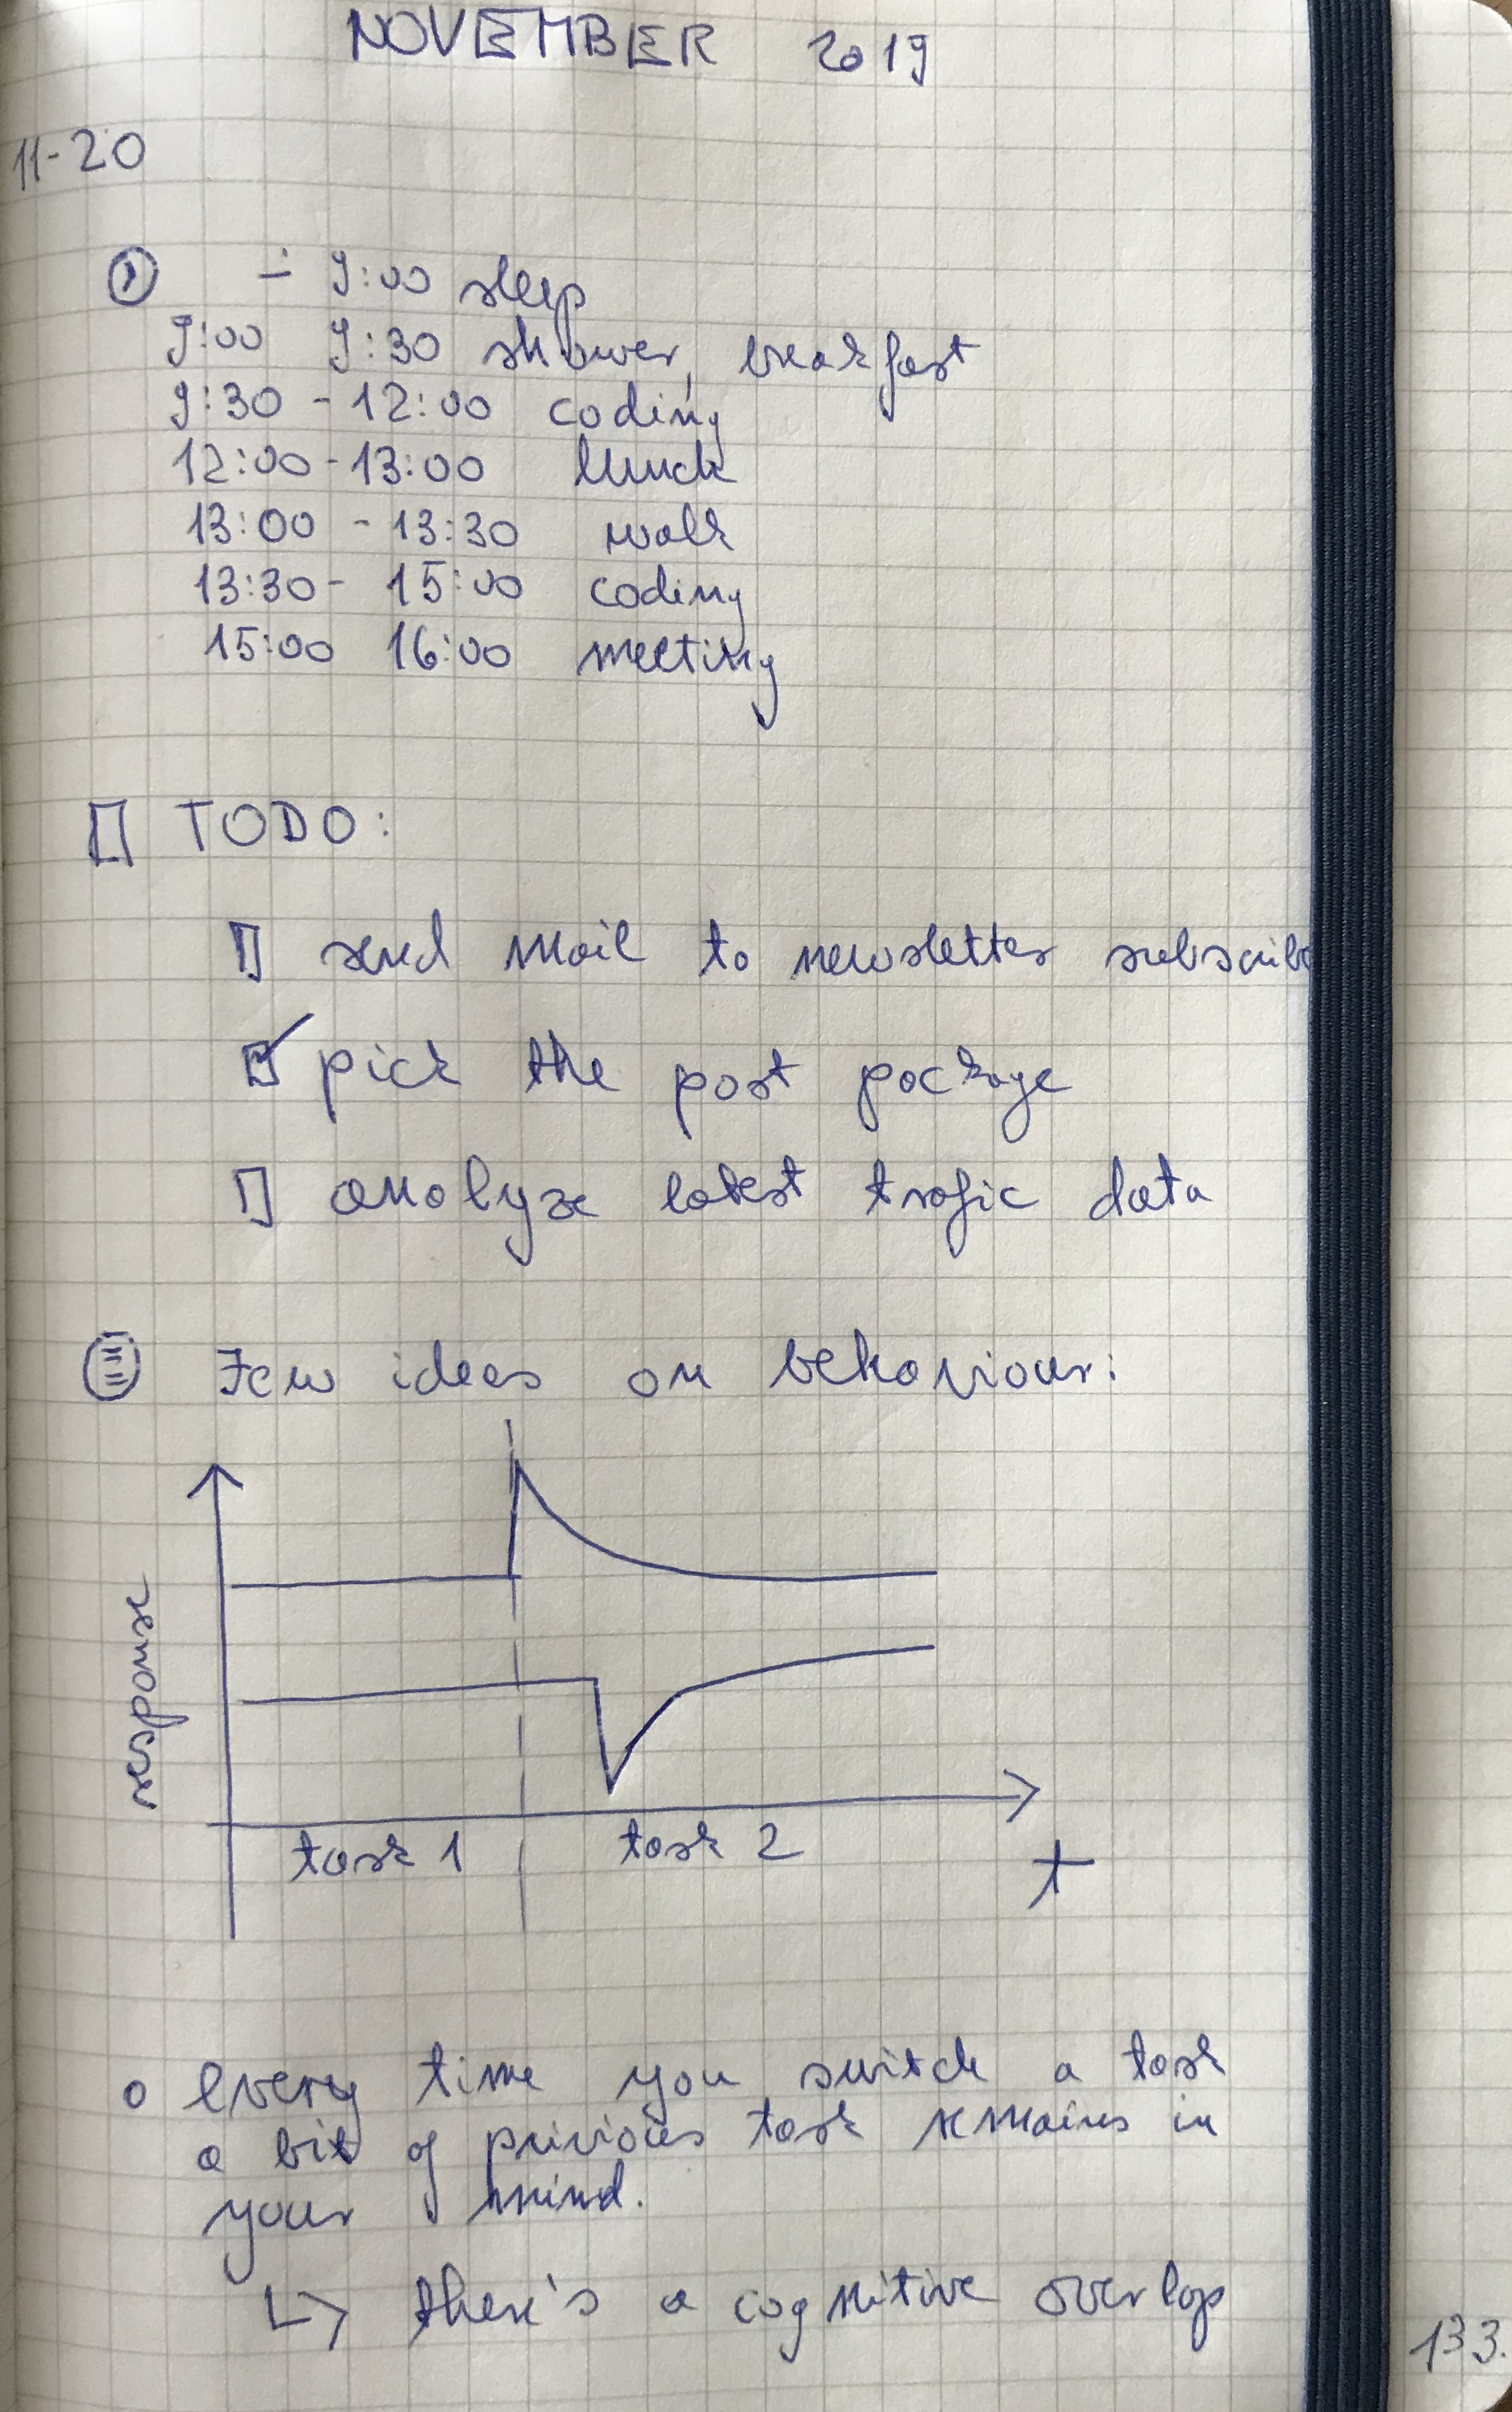 NOVEMBER 2019
11-20
- 9:00 sleep
9:00 9:30 shower, breakfast
9:30 - 12:00 coding
12:00 - 13:00 lunch
13:00 - 13:30 walk
13:30 - 15:00 coding
15:00 16:00 meeting
TODO:
send mail to newsletter subscribe
pick the post package
analyze latest trafic data
Few ideas on behaviour:
response
task 1 task 2
t
every time you switch a task
a bit of privious task remains in
your mind.
↳ there's a cognitive overlap
133.